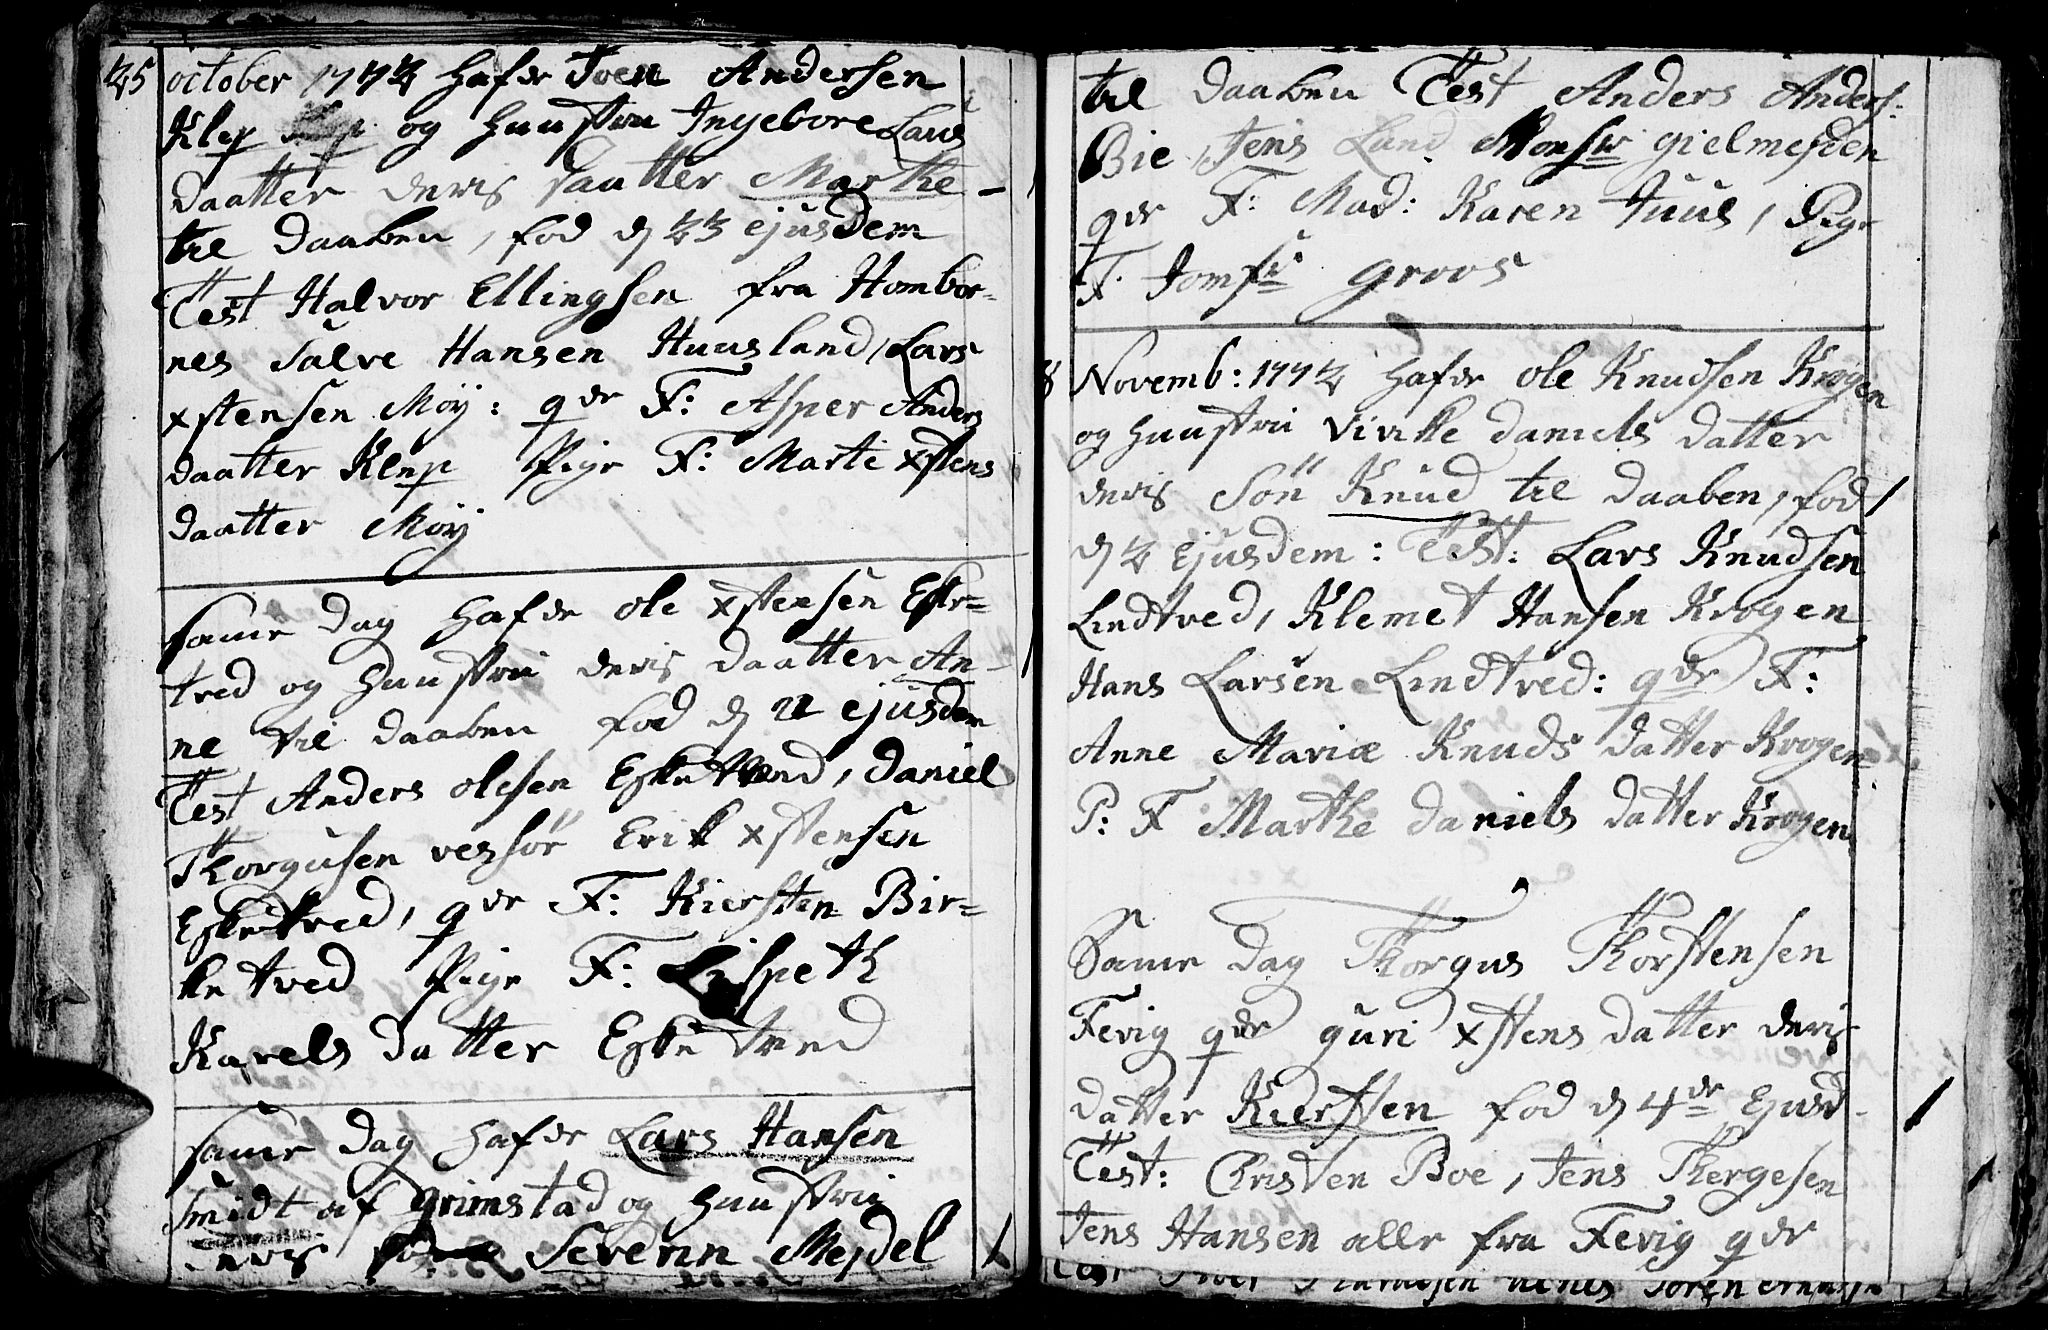 25 october 1772 hafde Iven Andersen
Klep og Huustru Ingebore Lars
daatter deris daatter Marthe
til daaben, fød d 23 ejusdem
Test Halvor Ellingsen fra Hombor=
nes Salve Hansen Huusland, Lars
xstensen Møy: qde F: Asper Anders
daatter Klep Pige F: Marte xstens
daatter Møy
same dag hafde ole xstensen Eske=
tved og Huustru deris daatter An-
ne til daaben fød d 22 ejusdem
Test Anders olesen Esketved, Daniel
Thorgusen vessør Erik xstensen
Esketved, qde F: Kiersten Bir=
ketved Pige F: Lispeth
Karels datter Esketved
same dag hafde Lars Hansen
Smidt af grimstad og Huustru
deris søn Severin Mejdel
til daaben Test Anders Anders:
Bie, Jens Lund Monsr gielmesden
qde F: Mad: Karen Juul, Pige
F. Jomfr Groos
8 Novemb: 1772 hafde ole Knudsen Krogen
og Huustru Vivikke daniels datter
deris Søn Knud til daaben, fød
d 2 ejusdem: Test: Lars Knudsen
Lindtved, Klemet Hansen Krogen
Hans Larsen Lindtved: qde F:
Anne Mariæ Knuds datter Krogen
P: F Marthe daniels datter Krogen
Same dag Thorgus Thorstensen
Fevig qde guri xstens datter deris
datter Kiersten fød d 4de Ejusd
Test: Christen Boe, Jens Thergesen
Jens Hansen alle fra Fevig qde